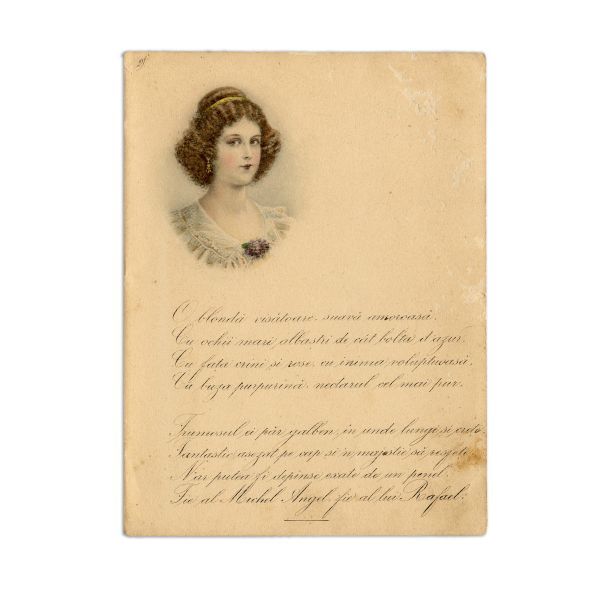 O blondă visătoare, suavă amoroasă.
Cu ochii mari, albastri de cât bolta d'azur.
Cu fața crini si rose, cu inima voluptuoasă,
Cu buza purpurină, nectarul cel mai pur.
Frumosul ei păr galben, in unde lungi, si crete
Fantastic, asezat pe cap si'n majestic să resfeti
N'ar putea fi depinse exate de un penel.
Fie al Michel Angel, fie al lui Rafael;